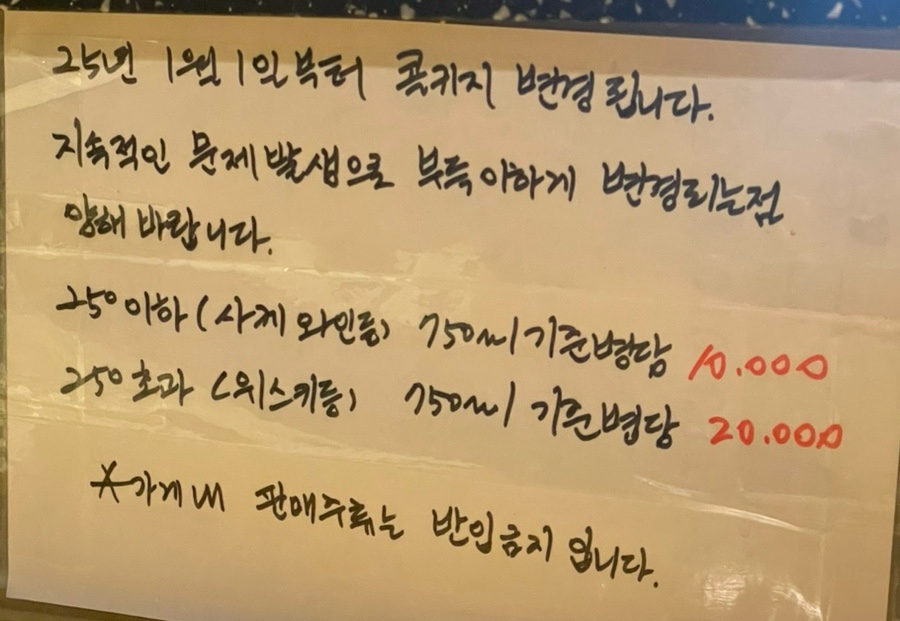 25년 1월 1일부터 콜키지 변경 됩니다.
지속적인 문제발생으로 부득이하게 변경되는점
양해 바랍니다.
25º이하 (사케 와인등) 750ml 기준병당 10.000
25º초과 (위스키등) 750ml 기준병당 20.000
*가게내 판매주류는 반입금지 입니다.